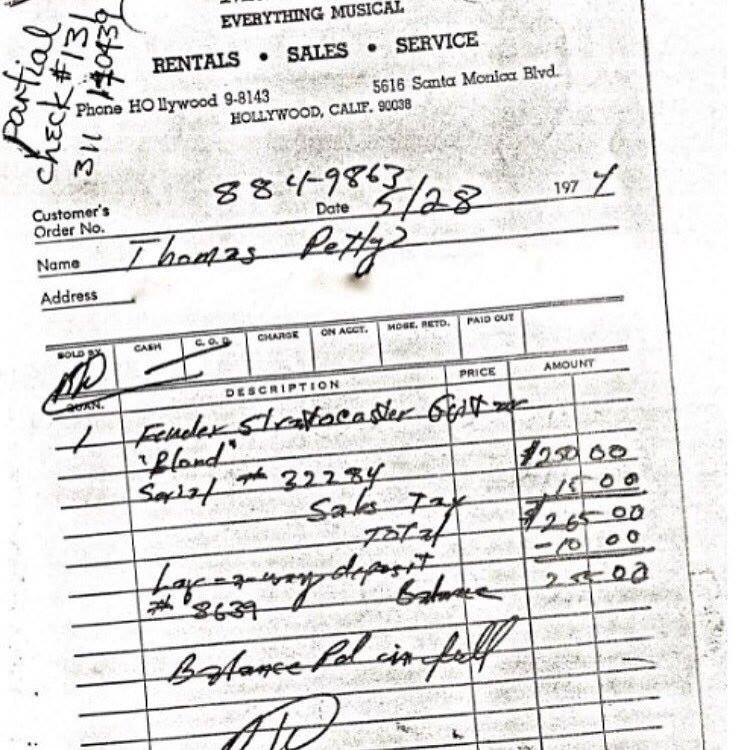 EVERYTHING MUSICAL
RENTALS • SALES • SERVICE
Phone HOllywood 9-8143 5616 Santa Monica Blvd.
HOLLYWOOD, CALIF. 90038
Partial
check #131
311
884-9863
Customer's
Order No. Date 5/28 1974
Name Thomas Petty
Address
SOLD BY CASH C. O. D. CHARGE ON ACCT. MDSE. RETD. PAID OUT
QUAN. DESCRIPTION PRICE AMOUNT
1 Fender Stratocaster Guitar
"Blond" $250 00
Serial # 32284 15 00
Sales Tax $265 00
Total -10 00
Lay-a-way deposit 255 00
# 8639 Balance
Balance Pd in full